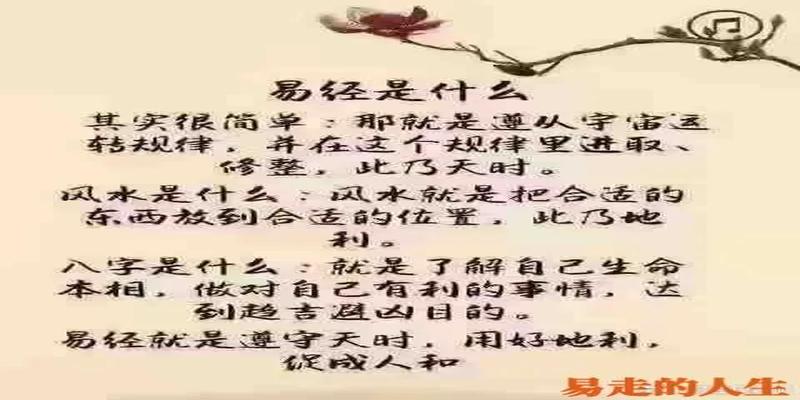 易经是什么
其实很简单：那就是遵从宇宙运
转规律，并在这个规律里进取、
修整，此乃天时。
风水是什么：风水就是把合适的
东西放到合适的位置，此乃地
利。
八字是什么：就是了解自己生命
本相，做对自己有利的事情，达
到趋吉避凶目的。
易经就是遵守天时，用好地利，
促成人和
易走的人生